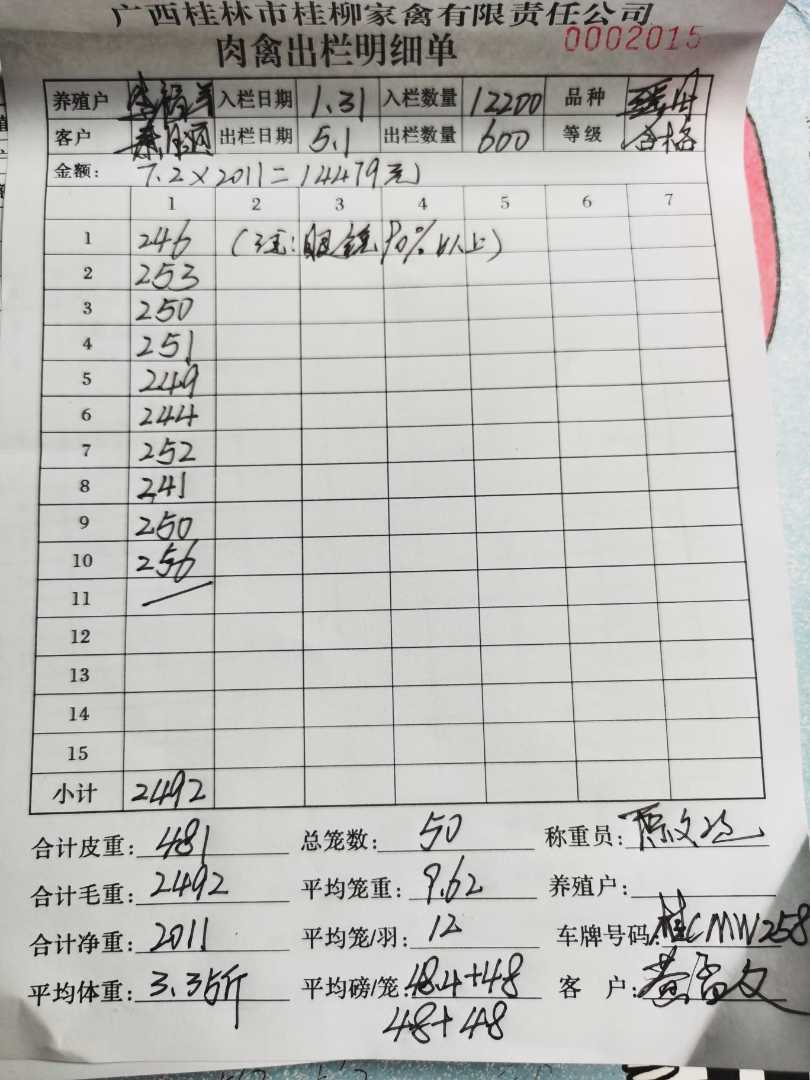 广西桂林市桂柳家禽有限责任公司
肉禽出栏明细单 0002015
养殖户 入栏日期 1.31 入栏数量 12200 品种
客户 出栏日期 5.1 出栏数量 600 等级 合格
金额: 7.2×2011=14479元
1 2 3 4 5 6 7
1 246 (注: 90%以上)
2 253
3 250
4 251
5 249
6 244
7 252
8 241
9 250
10 256
11
12
13
14
15
小计 2492
合计皮重: 481 总笼数: 50 称重员:
合计毛重: 2492 平均笼重: 9.62 养殖户:
合计净重: 2011 平均笼/羽: 12 车牌号码: 桂CMW258
平均体重: 3.35斤 平均磅/笼: 48.4+48 客 户:
48+48